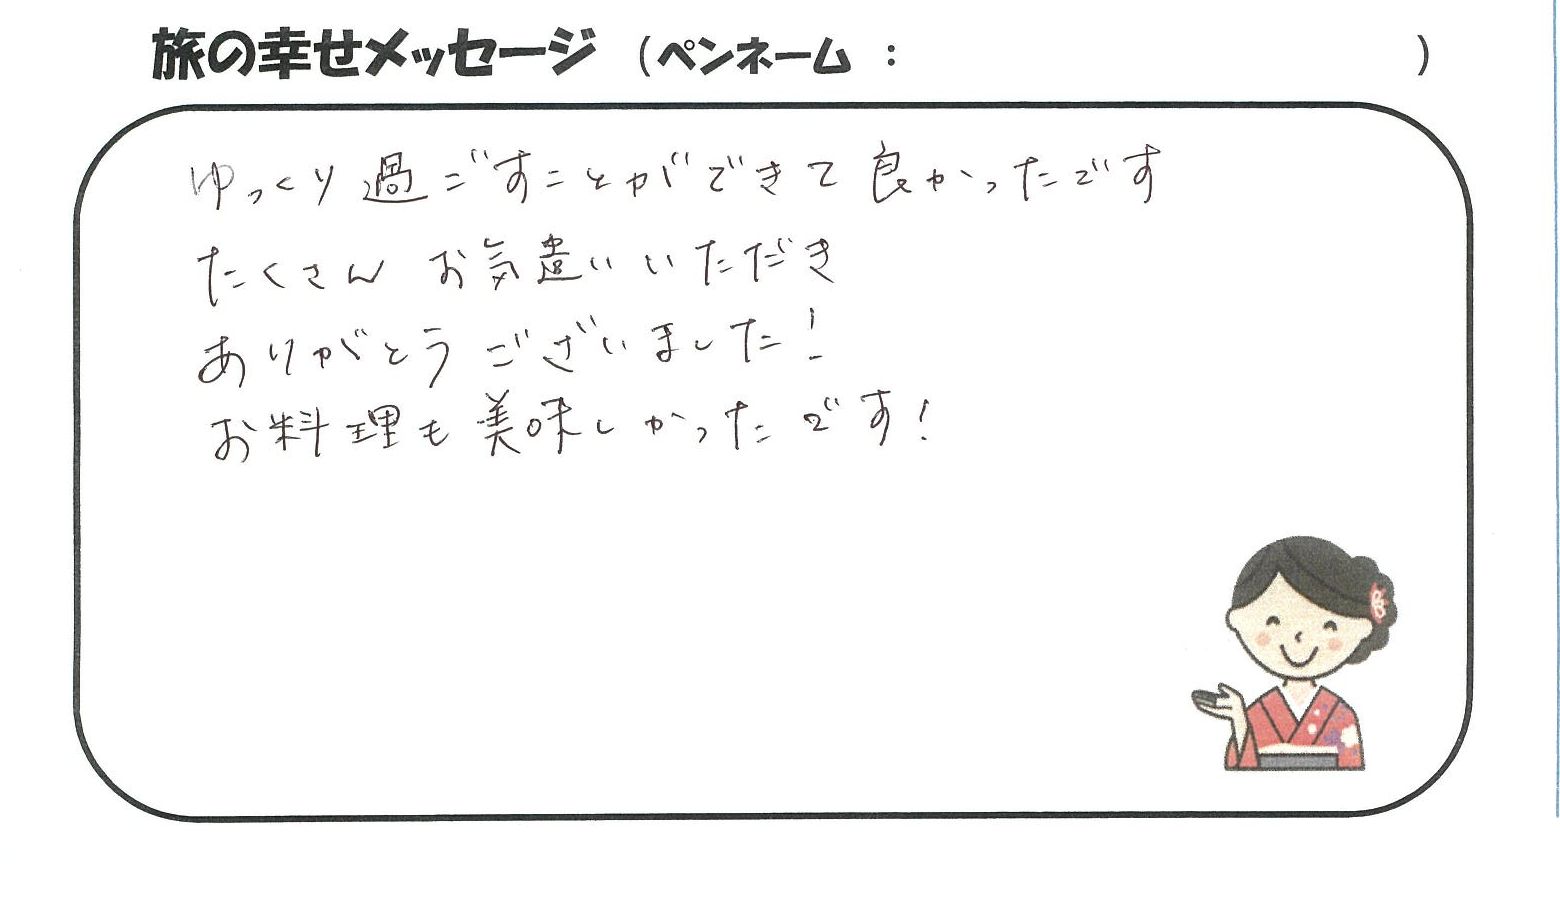 旅の幸せメッセージ (ペンネーム : )
ゆっくり過ごすことができて良かったです
たくさん お気遣いいただき
ありがとうございました!
お料理も美味しかったです!